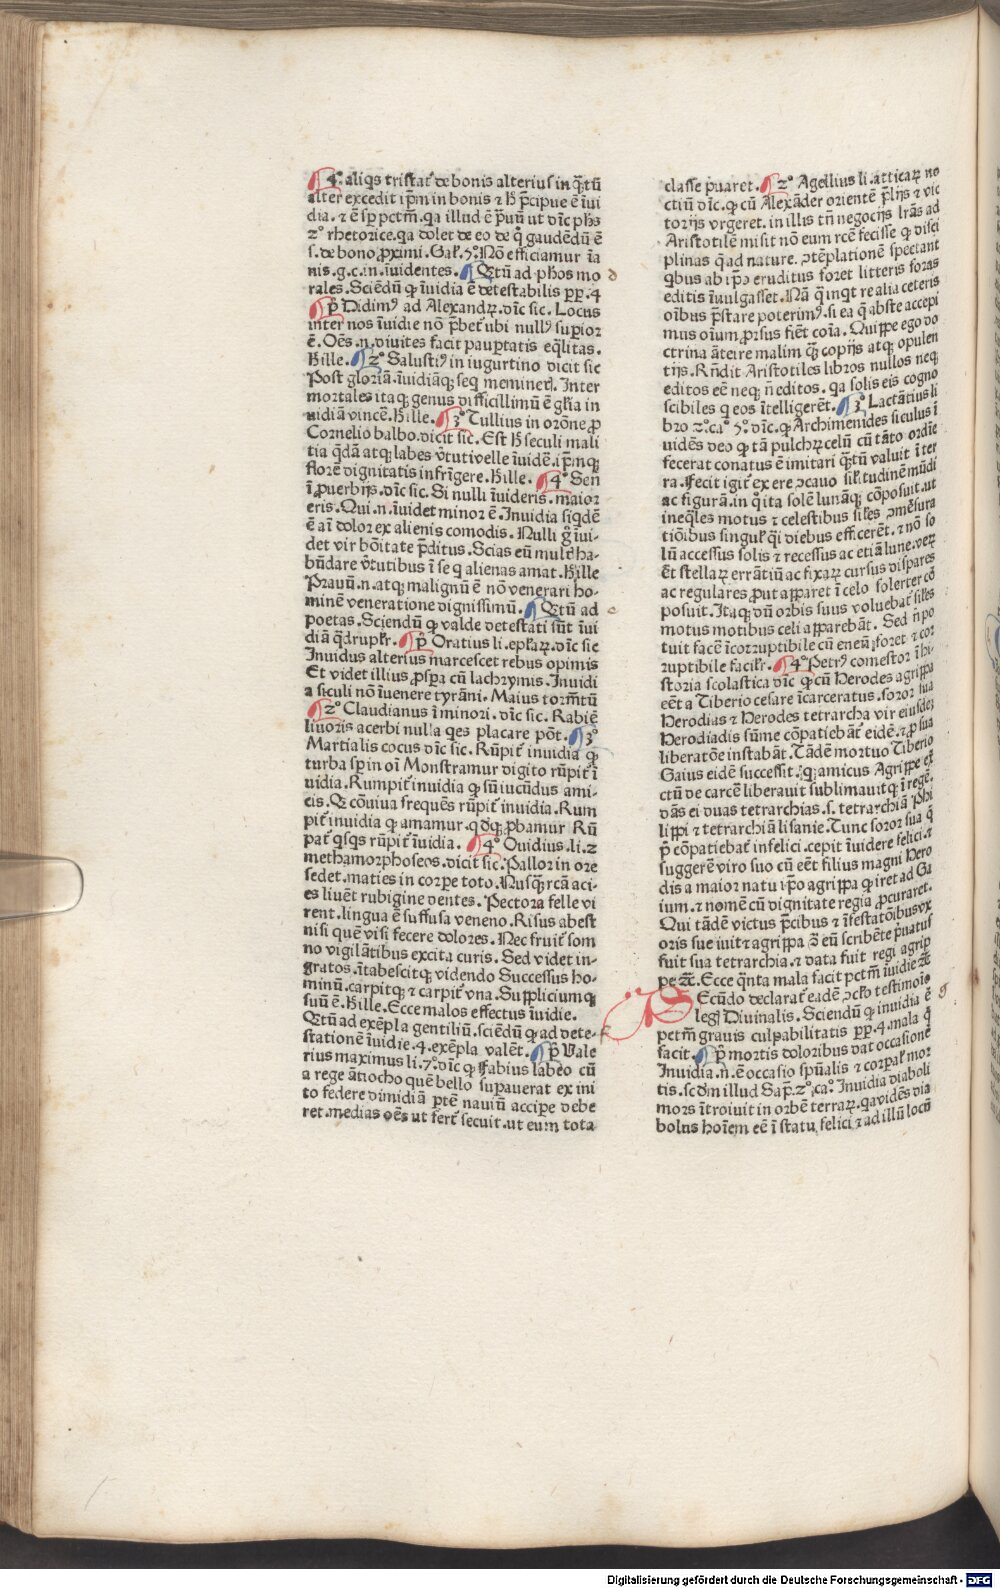 ¶ 4ͦ. aliq̄s tristat̄ de bonis alteriusin q̄ꝫtū
alter excedit ip̄m in bonis ⁊ ħ p̄cipue ē īui
dia. ⁊ ē sꝑ pctm̄. qa illud ē p̄uū ut dīc ph̄s
2ͦ rhetorice. qa dolet de eo de q̊ gaudēdū ē
s. de bono ꝓximi. Gal̵. 5ͦ. Nō efficiamur īa
nis. g. c. in. īuidentes. ¶ Qͣtū ad ph̄os mo
rales. Sciēdū ꝙ īuidia ē detestabilis ꝑꝑ. 4
¶ p̊ Didimꝰ ad Alexandꝝ. dīc sic. Locus
inter nos īuidie nō p̄bet̄ ubi nullꝰ suꝑior
ē. Oēs. n. diuites facit pauꝑtatis eq̄litas.
Hille. ¶ 2ͦ Salustiꝰ in iugurtino dicit sic
Post gloriā. īuidiāqꝫ seq̄ meminet̄. Inter
mortales itaqꝫ genus difficillimū ē gl̄ia in
uidiā vincē. Hille. ¶ 3ͦ Tullius in orōne ꝓ
Cornelio balbo. dicit sic. Est ħ seculi mali
tia q̄dā atqꝫ labes v̄tuti velle īuidē. ip̄mqꝫ
florē dignitatis infrīgere. Hille. ¶ 4ͦ Sen̄
ī ꝓuerbijs. dīc sic. Si nulli īuideris. maior
eris. Qui. n. īuidet minor ē. Inuidia siqdē
ē aī dolor ex alienis comodis. Nulli g̊ īui
det vir bōitate p̄ditus. Scias eū mulr̄ ha-
būdare v̄tutibus ī se q alienas amat. Hille
Prauū. n. atqꝫ malignū ē nō venerari ho-
minē veneratione dignissimū. ¶ Qͣtū ad
poetas. Sciendū ꝙ valde detestati sūt īui
diā q̄drupl̵r. ¶ p̊ Oratius li. epl̵aꝝ. dīc sic
Inuidus alterius marcescet rebus opimis
Et videt illius ꝓsꝑa cū lachrymis. Inuidi
a siculi nō īuenere tyrāni. Maius torm̄tū
¶ 2ͦ Claudianus ī minori. dīc sic. Rabiē
liuoris acerbi nulla qes placare pōt. ¶ 3ͦ
Martialis cocus dīc sic. Rūpit̄ inuidia ꝙ
turba sꝑ in oī Monstramur digito rūpit̄ ī
uidia. Rumpit̄ inuidia ꝙ sū iucūdus ami-
cis. Q cōuiua frequēs rūpit̄ inuidia. Rum
pit̄ inuidia ꝙ amamur. qdqꝫ ꝓbamur Rū
pat̄ qsqs rūpit̄ īuidia. ¶ 4ͦ Ouidius. li. 2
methamorphoseos. dicit sic. Pallor in ore
sedet. maties in corꝑe toto. Nusq̄ꝫ rcā aci-
es liuēt rubigine dentes. Pectora felle vi
rent. lingua ē suffusa veneno. Risus abest
nisi quē visi fecere dolores. Nec fruit̄ som
no vigilātibus excita curis. Sed videt in-
gratos. ītabescitqꝫ videndo Successus ho-
minū. carpitqꝫ ⁊ carpit̄ vna. Suppliciumqꝫ
suū ē. Hille. Ecce malos effectus īuidie.
Qͣtū ad exēpla gentiliū. sciēdū ꝙ ad dete-
stationē īuidie. 4. exēpla valēt. ¶ p̊ Vale
rius maximus li. 7ͦ. dīc ꝙ Fabius labeo cū
a rege ātiocho quē bello suꝑauerat ex ini
to federe dimidiā ꝑtē nauiū acciꝑe debe
ret. medias oēs ut fert̄ secuit. ut eum tota
classe p̄uaret. ¶ 2ͦ Agellius li. atticaꝝ no
ctiū dīc. ꝙ cū Alexāder orientē p̄lijs ⁊ vic
torijs vrgeret. in illis tn̄ negocijs lr̄as ad
Aristotilē misit nō eum rcē fecisse ꝙ disci
plinas q̄ ad nature. ↄtēplationē spectant
qbus ab ip̄o eruditus foret litteris foras
editis īuulgasset. Nā q̄ inqt re alia ceteris
oībus p̄stare poterimꝰ. si ea q̄ abste accepi
mus oīum ꝓrsus fiēt coīa. Quippe ego do
ctrina āteire malim q̄ꝫ copijs atqꝫ opulen
tijs. Rn̄dit Aristotiles libros nullos neqꝫ
editos eē neqꝫ n̄ editos. qa solis eis cogno
scibiles q eos ītelligerēt. ¶ 3ͦ Lactātius li
bro 2ͦ. caͦ 5ͦ dīc. ꝙ Archimenides siculus ī
uidēs deo ꝙ tā pulchꝝ celū cū tāto ordīe
fecerat conatus ē imitari q̄ꝫtū valuit ī ter
ra. Fecit igit̄ ex ere ↄcauo sil̵itudinē mūdi
ac figurā. in q̊ ita solē lunāqꝫ cōposuit. ut
ineq̄les motus ⁊ celestibus sil̵es ↄmēsura
tiōibus singul̵ q̄i diebus efficerēt. ⁊ nō so
lū accessus solis ⁊ recessus ac etiā lune. veꝝ
ēt stellaꝝ errātiū ac fixaꝝ cursus dispares
ac regulares ꝓut apparet ī celo solerter cō
posuit. Itaqꝫ dū orbis suus voluebat̄ sil̵es
motus motibus celi apparebāt. Sed n̄ po
tuit facē īcorruptibile cū eneā; foret ⁊ cor
ruptibile facil̵r. ¶ 4ͦ Petrꝰ comestor ī hi-
storia scolastica dīc ꝙ cū Herodes agrippa
eēt a Tiberio cesare īcarceratus. soror sua
Herodias ⁊ Herodes tetrarcha vir eiusdeꝫ
Herodiadis sūme cōpatiebāt̄ eidē. ⁊ ꝓ sua
liberatōe instabāt. Tādē mortuo Tiberio
Gaius eidē successit. q̄ amicus Agrippe ex
ctū de carcē liberauit sublimauitqꝫ ī regē.
dās ei duas tetrarchias. s. tetrarchiā Phi
lippi ⁊ tetrarchiā lisanie. Tunc soror sua q̄
p̊ cōpatiebat̄ infelici. cepit īuidere felici. ⁊
suggerē viro suo cū eēt filius magni Hero
dis a maior natu ip̄o agrippa ꝙ iret ad Ga
ium. ⁊ nomē cū dignitate regia ꝓcuraret.
Qui tādē victus p̄cibus ⁊ īfestatōibus vx
oris sue iuit ⁊ agrippa ↄ̄ eū scribēte p̄uatus
fuit sua tetrarchia. ⁊ data fuit regi agrip
pe ⁊c̄. Ecce q̄nta mala facit pctm̄ īuidie ⁊c̄
SEcūdo declarat̄ eadē ↄcl̵o testimoīo
legꝭ Diuinalis. Sciendū ꝙ inuidia ē
pctm̄ grauis culpabilitatis ꝑꝑ. 4. mala q̄
facit. ¶ p̊ mortis doloribus dat occasionē
Inuidia. n. ē occasio spūalis ⁊ corꝑal̵ mor
tis. scd̄m illud Sap̄. 2ͦ. caͦ. Inuidia diaboli
mors ītroiuit in orbē terraꝝ. qa vidēs dia
bolus hoīem eē ī statu felici ⁊ ad illū locū
d
e
f
g
Digitalisierung gefördert durch die Deutsche Forschungsgemeinschaft - DFG